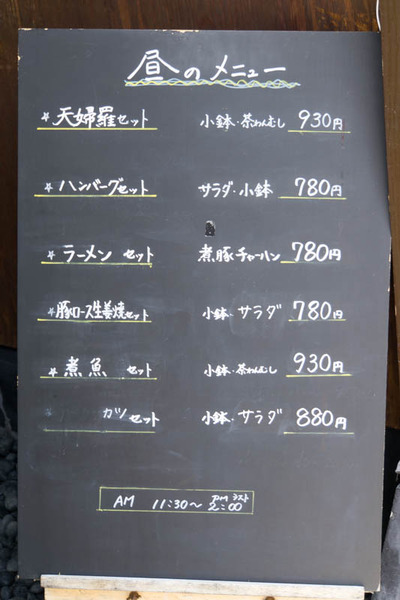 昼のメニュー
*天婦羅セット 小鉢・茶わんむし 930円
*ハンバーグセット サラダ・小鉢 780円
*ラーメン セット 煮豚チャーハン 780円
*豚ロース生姜焼セット 小鉢・サラダ 780円
*煮魚 セット 小鉢・茶わんむし 930円
カツ セット 小鉢・サラダ 880円
AM 11:30～ PM 2:00 ラスト